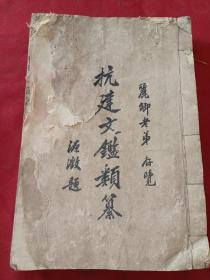 麗卿老弟 存覽
抗建文鑑類纂
源澂題